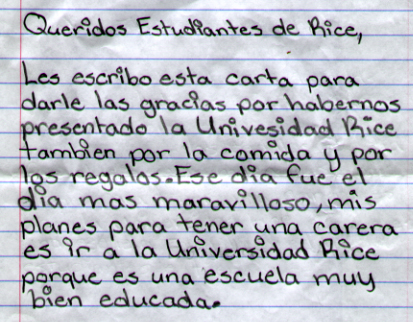 Queridos Estudiantes de Rice,
Les escribo esta carta para
darle las gracias por habernos
presentado la Univesidad Rice
tambien por la comida y por
los regalos. Ese dia fue el
dia mas maravilloso, mis
planes para tener una carera
es ir a la Universidad Rice
porque es una escuela muy
bien educada.